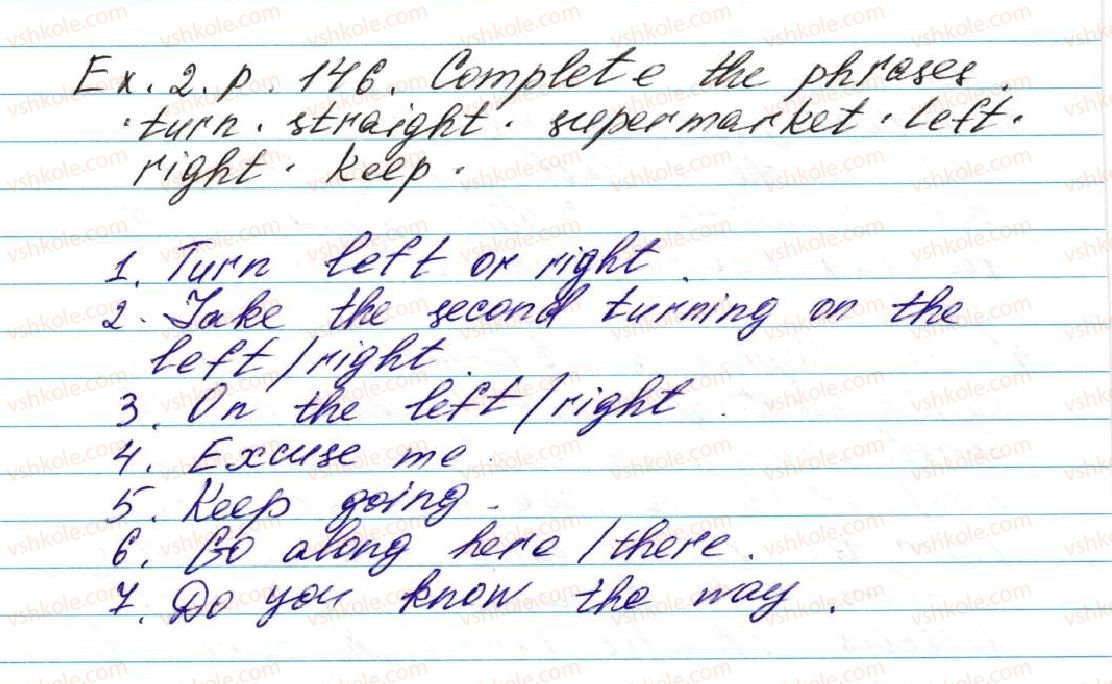 Ex. 2. p. 146. Complete the phrases.
· turn · straight · supermarket · left ·
right · keep ·
1. Turn left or right.
2. Take the second turning on the
left / right.
3. On the left / right.
4. Excuse me.
5. Keep going.
6. Go along here / there.
7. Do you know the way.